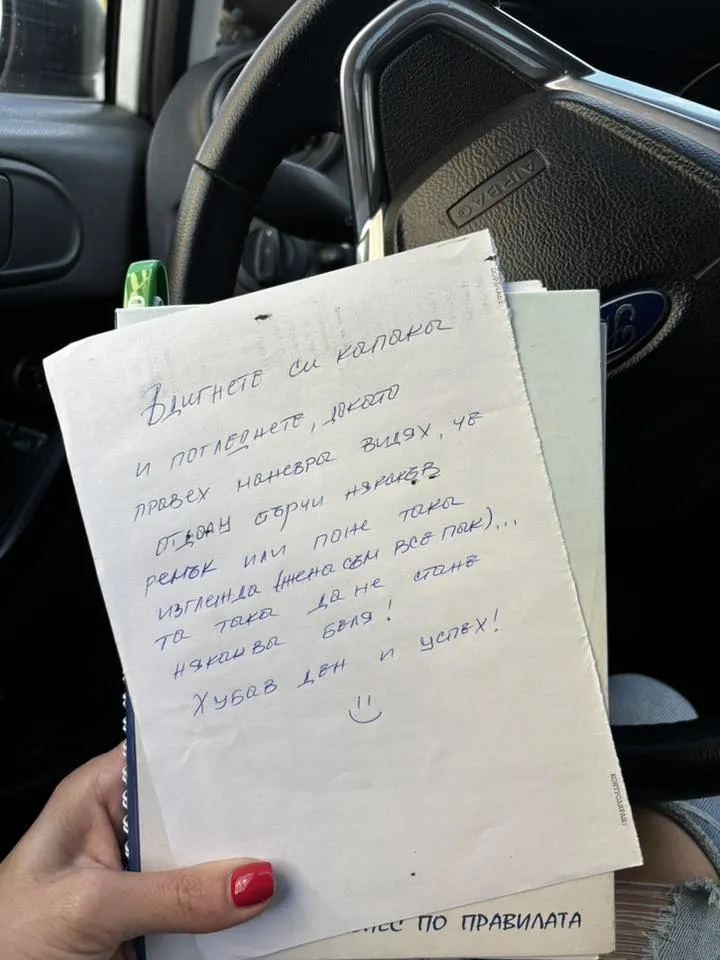 AIRBAG
Вдигнете си капака
и погледнете, докато
правех маневра видях, че
отдолу стърчи някакъв
ремък или поне така
изглежда (жена съм все пак)...
та така да не стане
някаква беля!
Хубав ден и успех!
КОНТРОЛИРАЩ:
ПО ПРАВИЛАТА